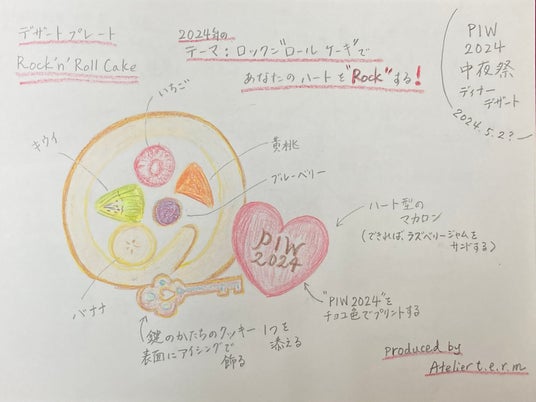 デザートプレート
Rock'n'Roll Cake
2024年の
テーマ:ロックン"ロール ケーキ"で
あなたのハートを"Rock"する!
PIW
2024
中夜祭
ディナー
デザート
2024.5.2?~
いちご
キウイ
黄桃
ブルーベリー
バナナ
PIW
2024
ハート型の
マカロン
(できれば、ラズベリージャムを
サンドする)
"PIW 2024"を
チョコ色でプリントする
鍵のかたちのクッキー 1つを
添える
表面にアイシングで
飾る
produced by
Atelier t.e.r.m